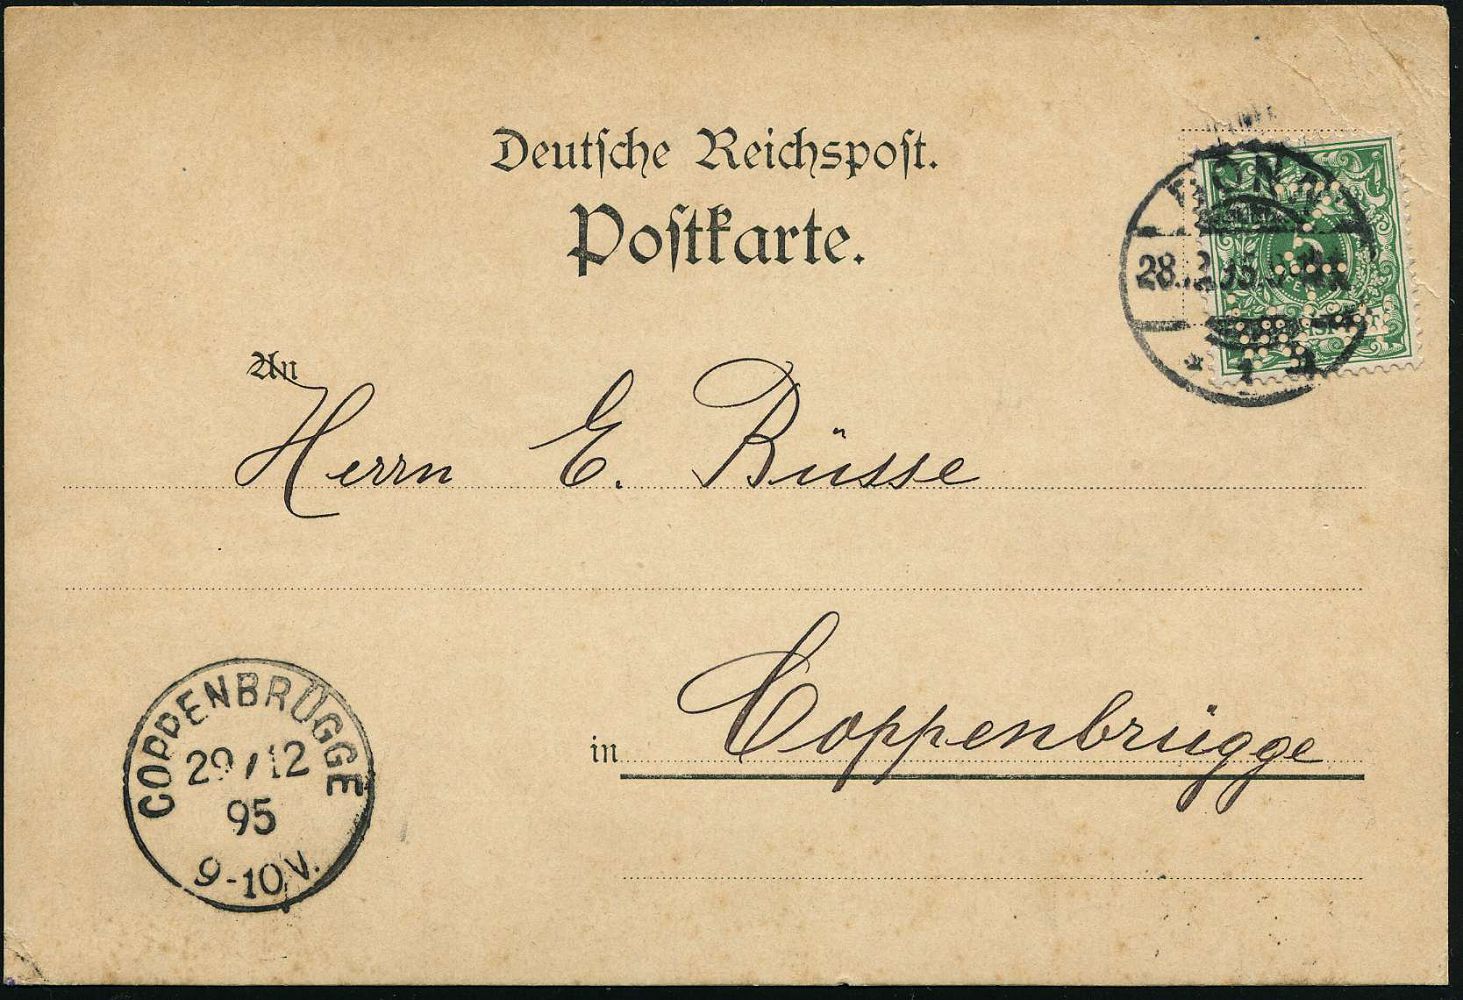 Deutsche Reichspost.
Postkarte.
BONN
28.12.95.
* 1
5
An
Herrn E. Büsse
in Coppenbrügge
COPPENBRÜGGE
29/12
95
9-10 V.